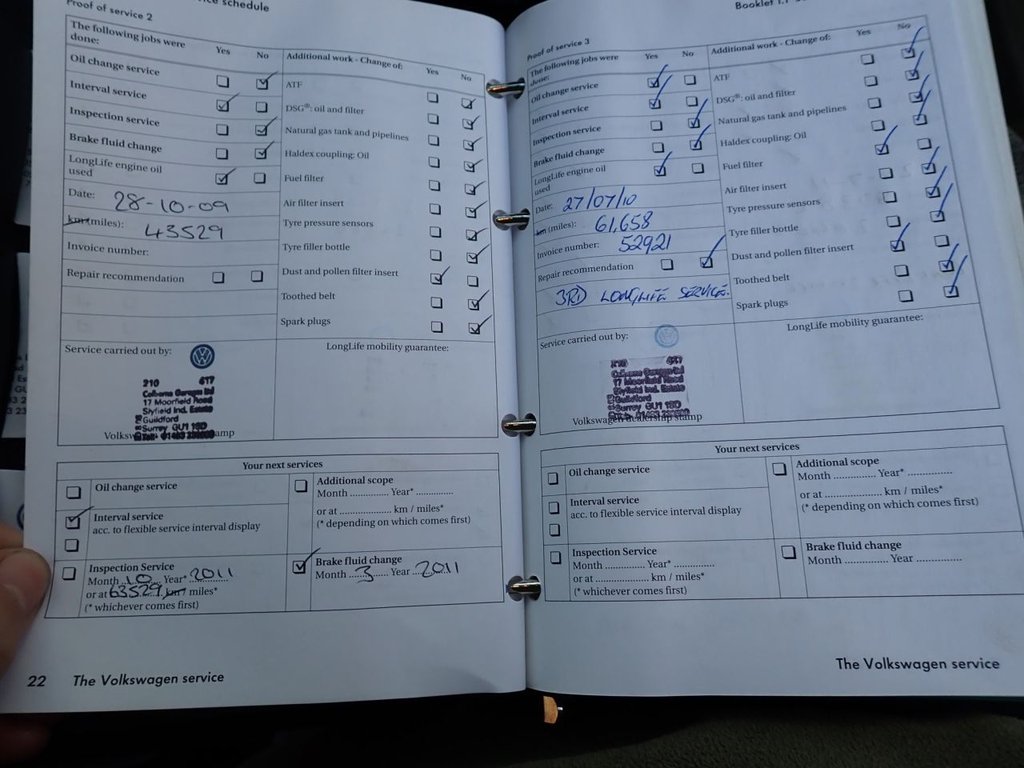 Proof of service 2
service schedule
The following jobs were done:
Yes No
Additional work - Change of:
Yes No
Oil change service
Interval service
Inspection service
Brake fluid change
LongLife engine oil used
Date: 28-10-09
km (miles): 43529
Invoice number:
Repair recommendation
ATF
DSG®: oil and filter
Natural gas tank and pipelines
Haldex coupling: Oil
Fuel filter
Air filter insert
Tyre pressure sensors
Tyre filler bottle
Dust and pollen filter insert
Toothed belt
Spark plugs
Service carried out by:
LongLife mobility guarantee:
210 617
Colborne Garages ltd
17 Moorfield Road
Slyfield Ind. Estate
Guildford
Surrey GU1 1SD
Your next services
Oil change service
Interval service
acc. to flexible service interval display
Inspection Service
Month 10 Year* 2011
or at 63529 km / miles*
(* whichever comes first)
Additional scope
Month .............. Year* ..............
or at .................... km / miles*
(* depending on which comes first)
Brake fluid change
Month 3 Year 2011
22 The Volkswagen service
Booklet 1.1
Proof of service 3
The following jobs were done:
Yes No
Additional work - Change of:
Yes No
Oil change service
Interval service
Inspection service
Brake fluid change
LongLife engine oil used
Date: 27/07/10
km (miles): 61,658
Invoice number: 52921
Repair recommendation
3RD LONGLIFE SERVICE.
ATF
DSG®: oil and filter
Natural gas tank and pipelines
Haldex coupling: Oil
Fuel filter
Air filter insert
Tyre pressure sensors
Tyre filler bottle
Dust and pollen filter insert
Toothed belt
Spark plugs
Service carried out by:
LongLife mobility guarantee:
210 617
Colborne Garages ltd
17 Moorfield Road
Slyfield Ind. Estate
Guildford
Surrey GU1 1SD
Volkswagen dealership stamp
Your next services
Oil change service
Interval service
acc. to flexible service interval display
Inspection Service
Month .............. Year* ..............
or at .................... km / miles*
(* whichever comes first)
Additional scope
Month .............. Year* ..............
or at .................... km / miles*
(* depending on which comes first)
Brake fluid change
Month .............. Year ..............
The Volkswagen service